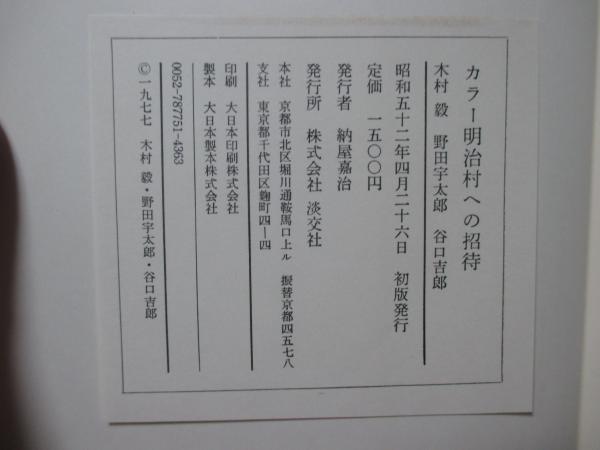 カラー明治村への招待
木村　毅　野田宇太郎　谷口吉郎
昭和五十二年四月二十六日　初版発行
定価　一五〇〇円
発行者　納屋嘉治
発行所　株式会社 淡交社
本社　京都市北区堀川通鞍馬口上ル　振替京都四五七八
支社　東京都千代田区麹町四―四
印刷　大日本印刷株式会社
製本　大日本製本株式会社
0052-787751-4363
©一九七七　木村　毅・野田宇太郎・谷口吉郎